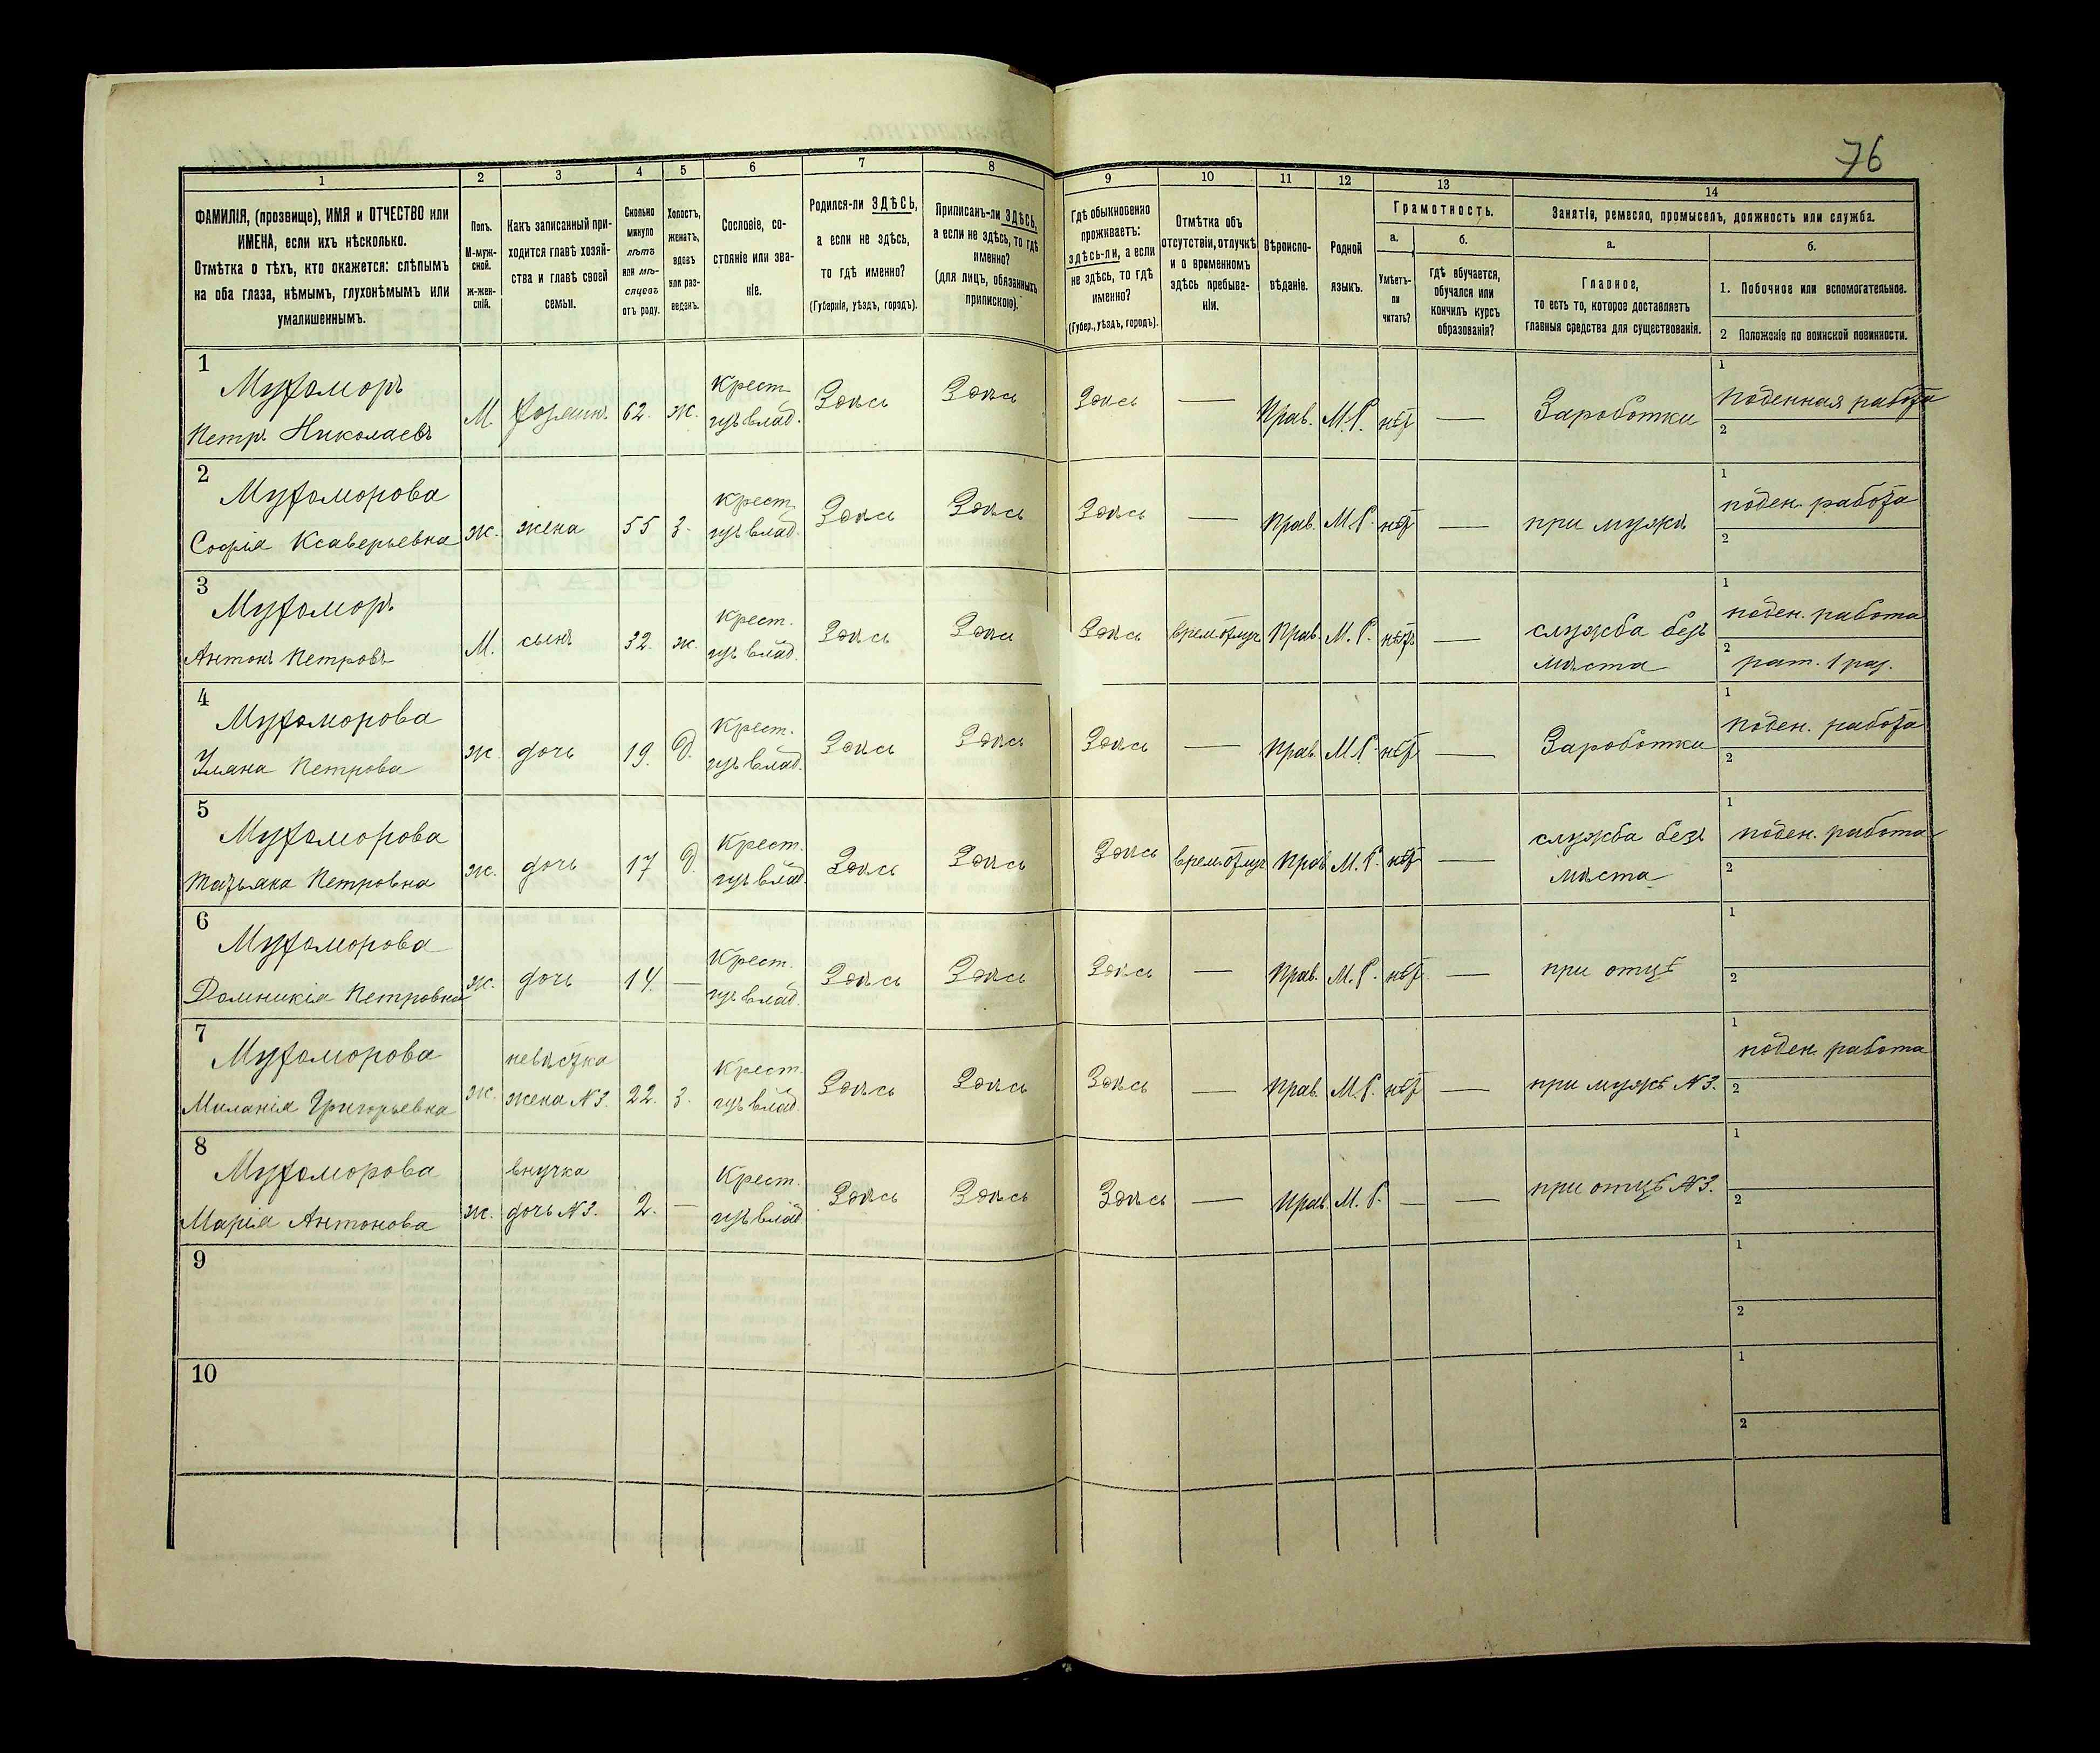 76
1 2 3 4 5 6 7 8 9 10 11 12 13 14
ФАМИЛІЯ, (прозвище), ИМЯ и ОТЧЕСТВО или
ИМЕНА, если ихъ нѣсколько.
Отмѣтка о тѣхъ, кто окажется: слѣпымъ
на оба глаза, нѣмымъ, глухонѣмымъ или
умалишеннымъ.
Полъ.
М-муж-
ской.
Ж-жен-
скій.
Какъ записанный при-
ходится главѣ хозяй-
ства и главѣ своей
семьи.
Сколько
минуло
лѣтъ
или мѣ-
сяцевъ
отъ роду.
Холостъ,
женатъ,
вдовъ
или раз-
веденъ.
Сословіе, со-
стояніе или зва-
ніе.
Родился-ли ЗДѢСЬ,
а если не здѣсь,
то гдѣ именно?
(Губернія, уѣздъ, городъ).
Приписанъ-ли ЗДѢСЬ,
а если не здѣсь, то гдѣ
именно?
(для лицъ, обязанныхъ
припискою).
Гдѣ обыкновенно
проживаетъ:
здѣсь-ли, а если
не здѣсь, то гдѣ
именно?
(Губер., уѣздъ, городъ).
Отмѣтка объ
отсутствіи, отлучкѣ
и о временномъ
здѣсь пребыва-
ніи.
Вѣроиспо-
вѣданіе.
Родной
языкъ.
Грамотность.
а.
Умѣетъ-
ли
читать?
б.
гдѣ обучается,
обучался или
кончилъ курсъ
образованія?
Занятіе, ремесло, промыселъ, должность или служба.
а.
Главное,
то есть то, которое доставляетъ
главныя средства для существованія.
б.
1. Побочное или вспомогательное.
2 Положеніе по воинской повинности.
1
Мухоморъ
Петръ Николаевъ
М. хозяин. 62. ж.
Крест.
изъ влад.
Здѣсь Здѣсь Здѣсь — Прав. М.Р. нѣт — Заработки
1 поденная работа
2
2
Мухоморова
Софія Ксаверьевна
ж. жена 55 з.
Крест.
изъ влад.
Здѣсь Здѣсь Здѣсь — Прав. М.Р. нѣт — при мужѣ
1 поден. работа
2
3
Мухоморъ
Антонъ Петровъ
М. сынъ 32. ж.
Крест.
изъ влад.
Здѣсь Здѣсь Здѣсь врем. отлуч. Прав. М.Р. нѣт —
служба безъ
мѣста
1 поден. работа
2 рат. 1 раз.
4
Мухоморова
Ульяна Петрова
ж. дочь 19. Д.
Крест.
изъ влад.
Здѣсь Здѣсь Здѣсь — Прав. М.Р. нѣт — Зароботки
1 поден. работа
2
5
Мухоморова
Татьяна Петровна
ж. дочь 17 Д.
Крест.
изъ влад.
Здѣсь Здѣсь Здѣсь врем. отлуч. Прав. М.Р. нѣт —
служба безъ
мѣста
1 поден. работа
2
6
Мухоморова
Домникія Петровна
ж. дочь 14. —
Крест.
изъ влад.
Здѣсь Здѣсь Здѣсь — Прав. М.Р. нѣт — при отцѣ
1
2
7
Мухоморова
Миланія Григорьевна
ж.
невѣстка
жена №3. 22. з.
Крест.
изъ влад.
Здѣсь Здѣсь Здѣсь — Прав. М.Р. нѣт — при мужѣ №3.
1 поден. работа
2
8
Мухоморова
Марія Антонова
ж.
внучка
дочь №3. 2. —
Крест.
изъ влад.
Здѣсь Здѣсь Здѣсь — Прав. М.Р. — — при отцѣ №3.
1
2
9
1
2
10
1
2